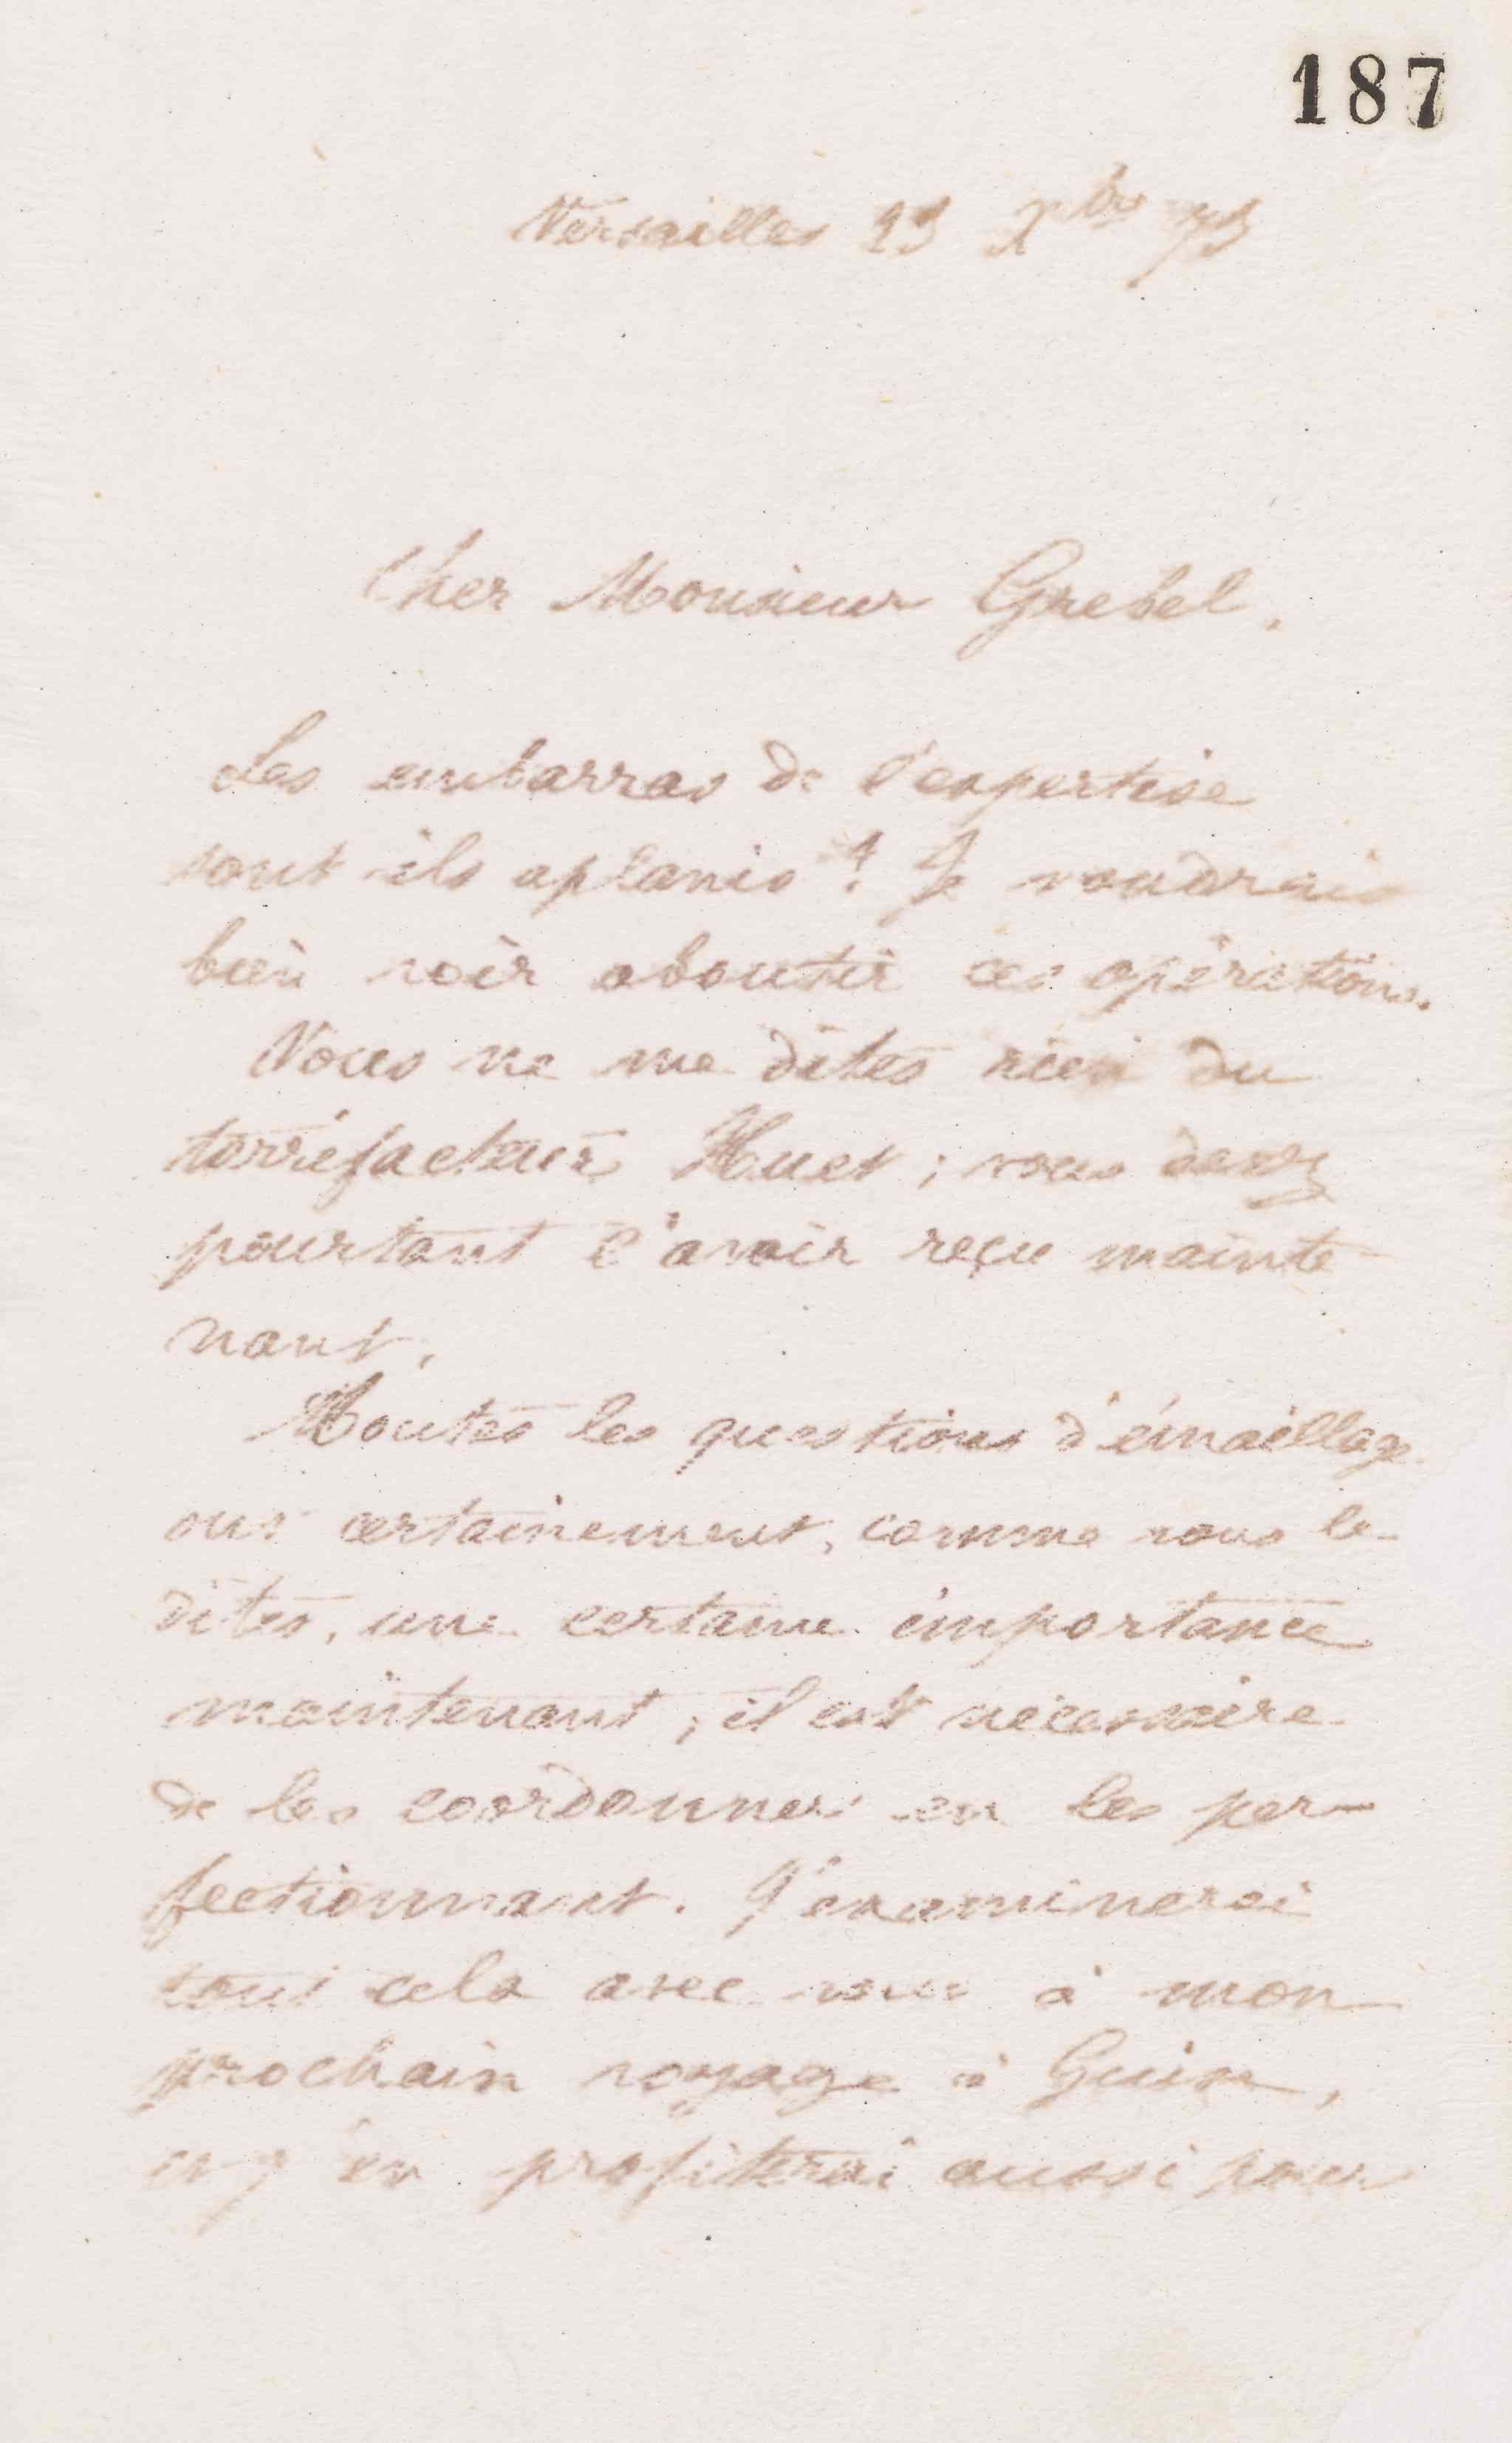 187
Versailles 23 Xbre 73
Cher Monsieur Grebel,
Les embarras de l'expertise
sont-ils aplanis ? Je voudrais
bien voir aboutir ces opérations.
Vous ne me dites rien du
torréfacteur Huet ; vous devez
pourtant l'avoir reçu mainte-
nant.
Toutes les questions d'émaillage
ont certainement, comme vous le
dites, une certaine importance
maintenant ; il est nécessaire
de les coordonner en les per-
fectionnant. J'examinerai
tout cela avec vous à mon
prochain voyage à Guise,
et j'en profiterai aussi pour